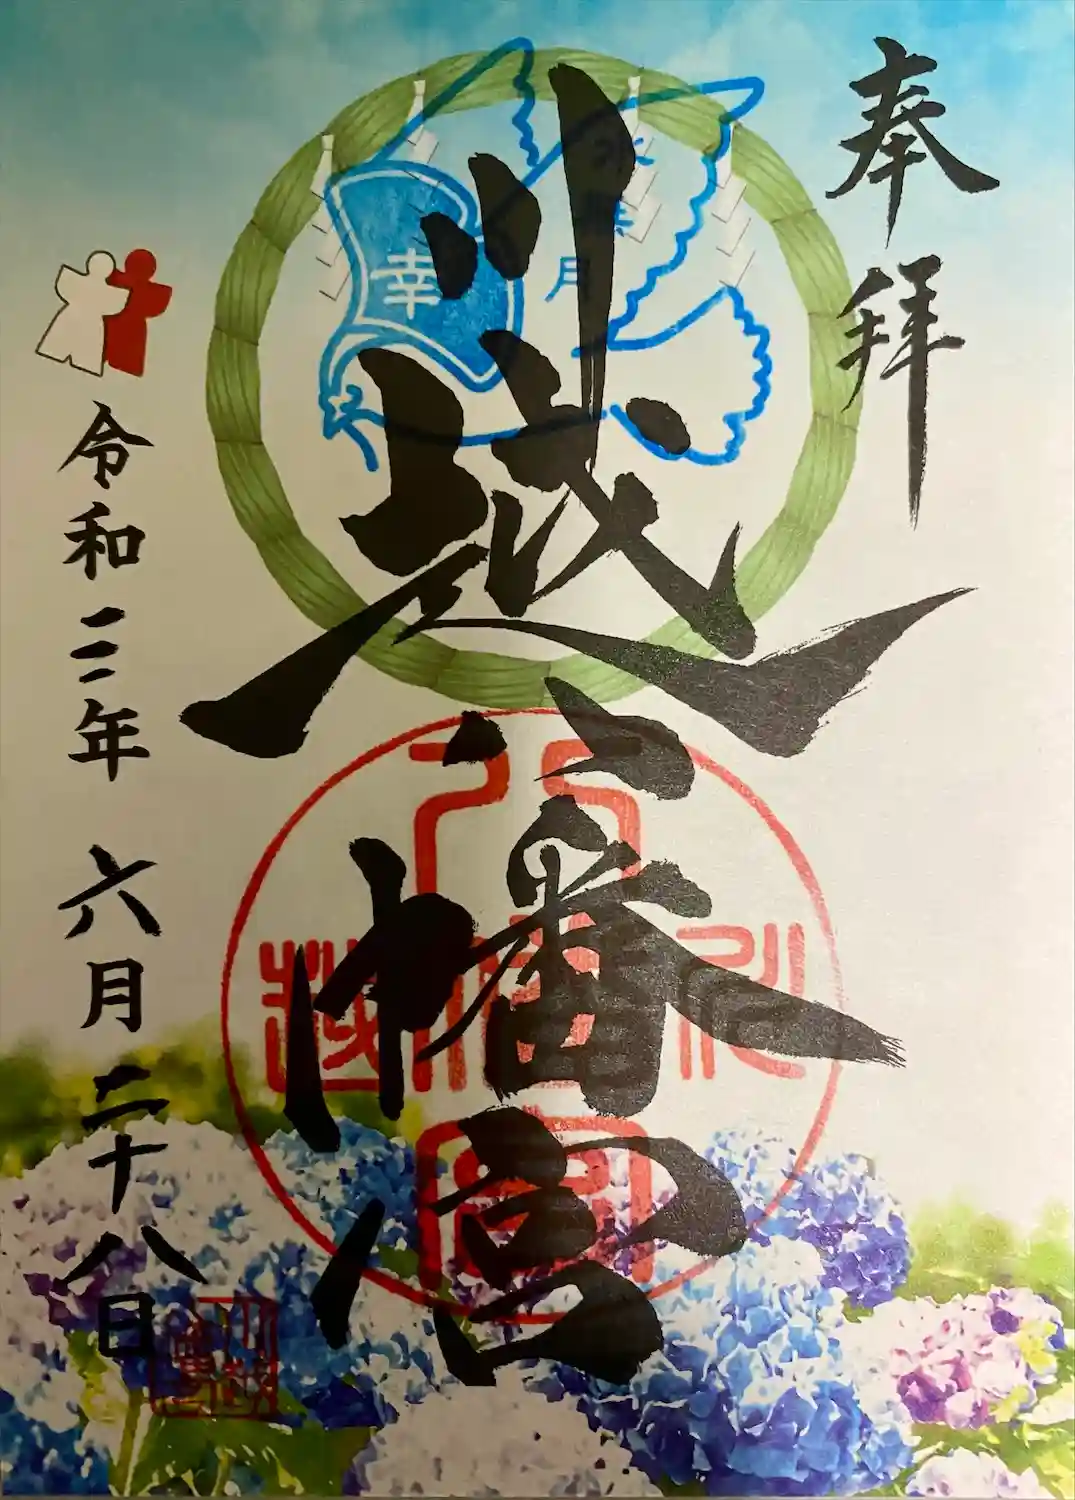 奉拝
川越八幡宮
令和二年 六月二十八日
幸
水無月
川越
八幡宮